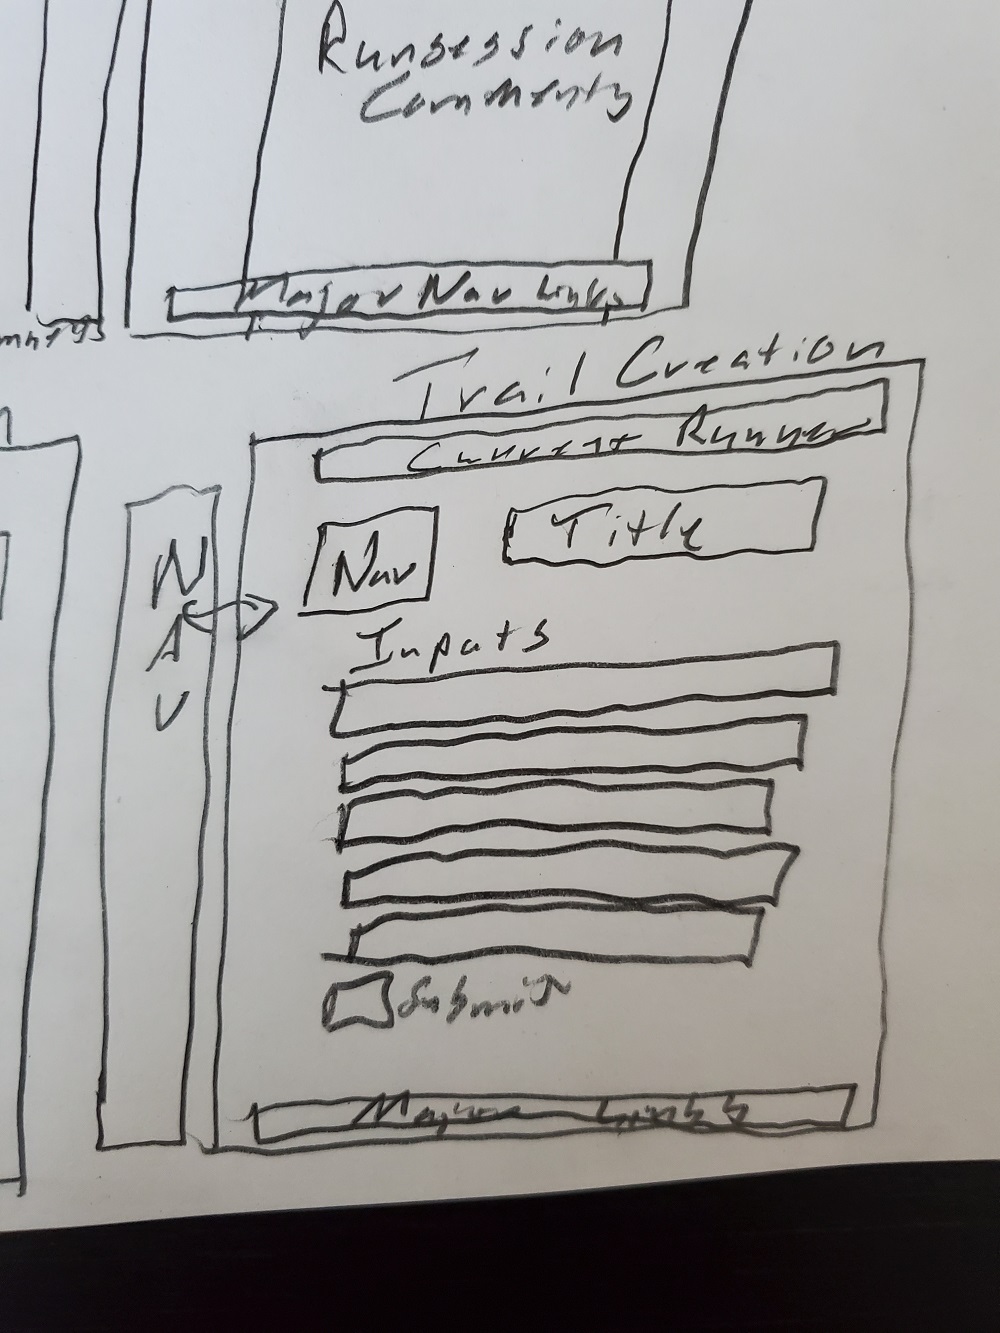 Runsession
Comments
Major Nav Links
Trail Creation
Current Runner
Nav
Title
NAV
Inputs
Submit
Major Links